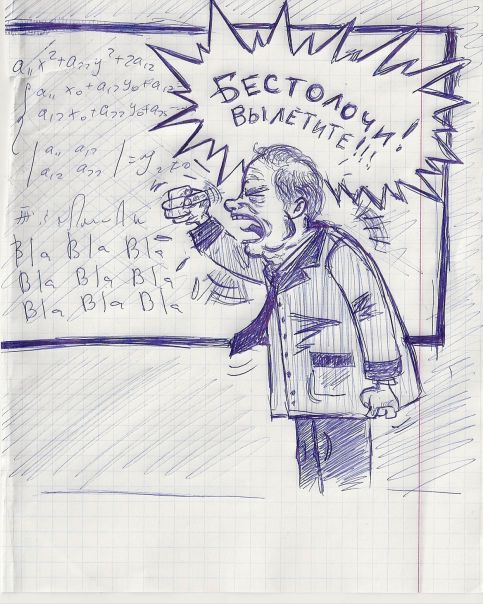 a₁₁x²+a₂₂y²+2a₁₂
a₁₁x₀+a₁₂y₀+a₁₂
a₁₂x₀+a₂₂y₀+a₂₅
a₁₁ a₁₂
a₁₂ a₂₂
Bla Bla Bla
Bla Bla Bla
Bla Bla Bla
БЕСТОЛОЧИ!
ВЫЛЕТИТЕ!!!